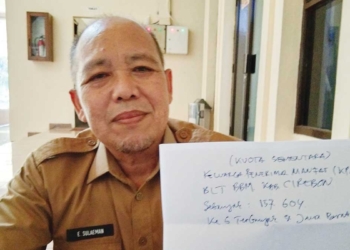 E. SULAEMAN
(KUOTA SEMENTARA)
KELUARGA PENERIMA MANFAAT (KPM
BLT BBM KAB CIREBON
Sebanyak : 157.604
Ke 6 Terbanyak di Jawa Barat